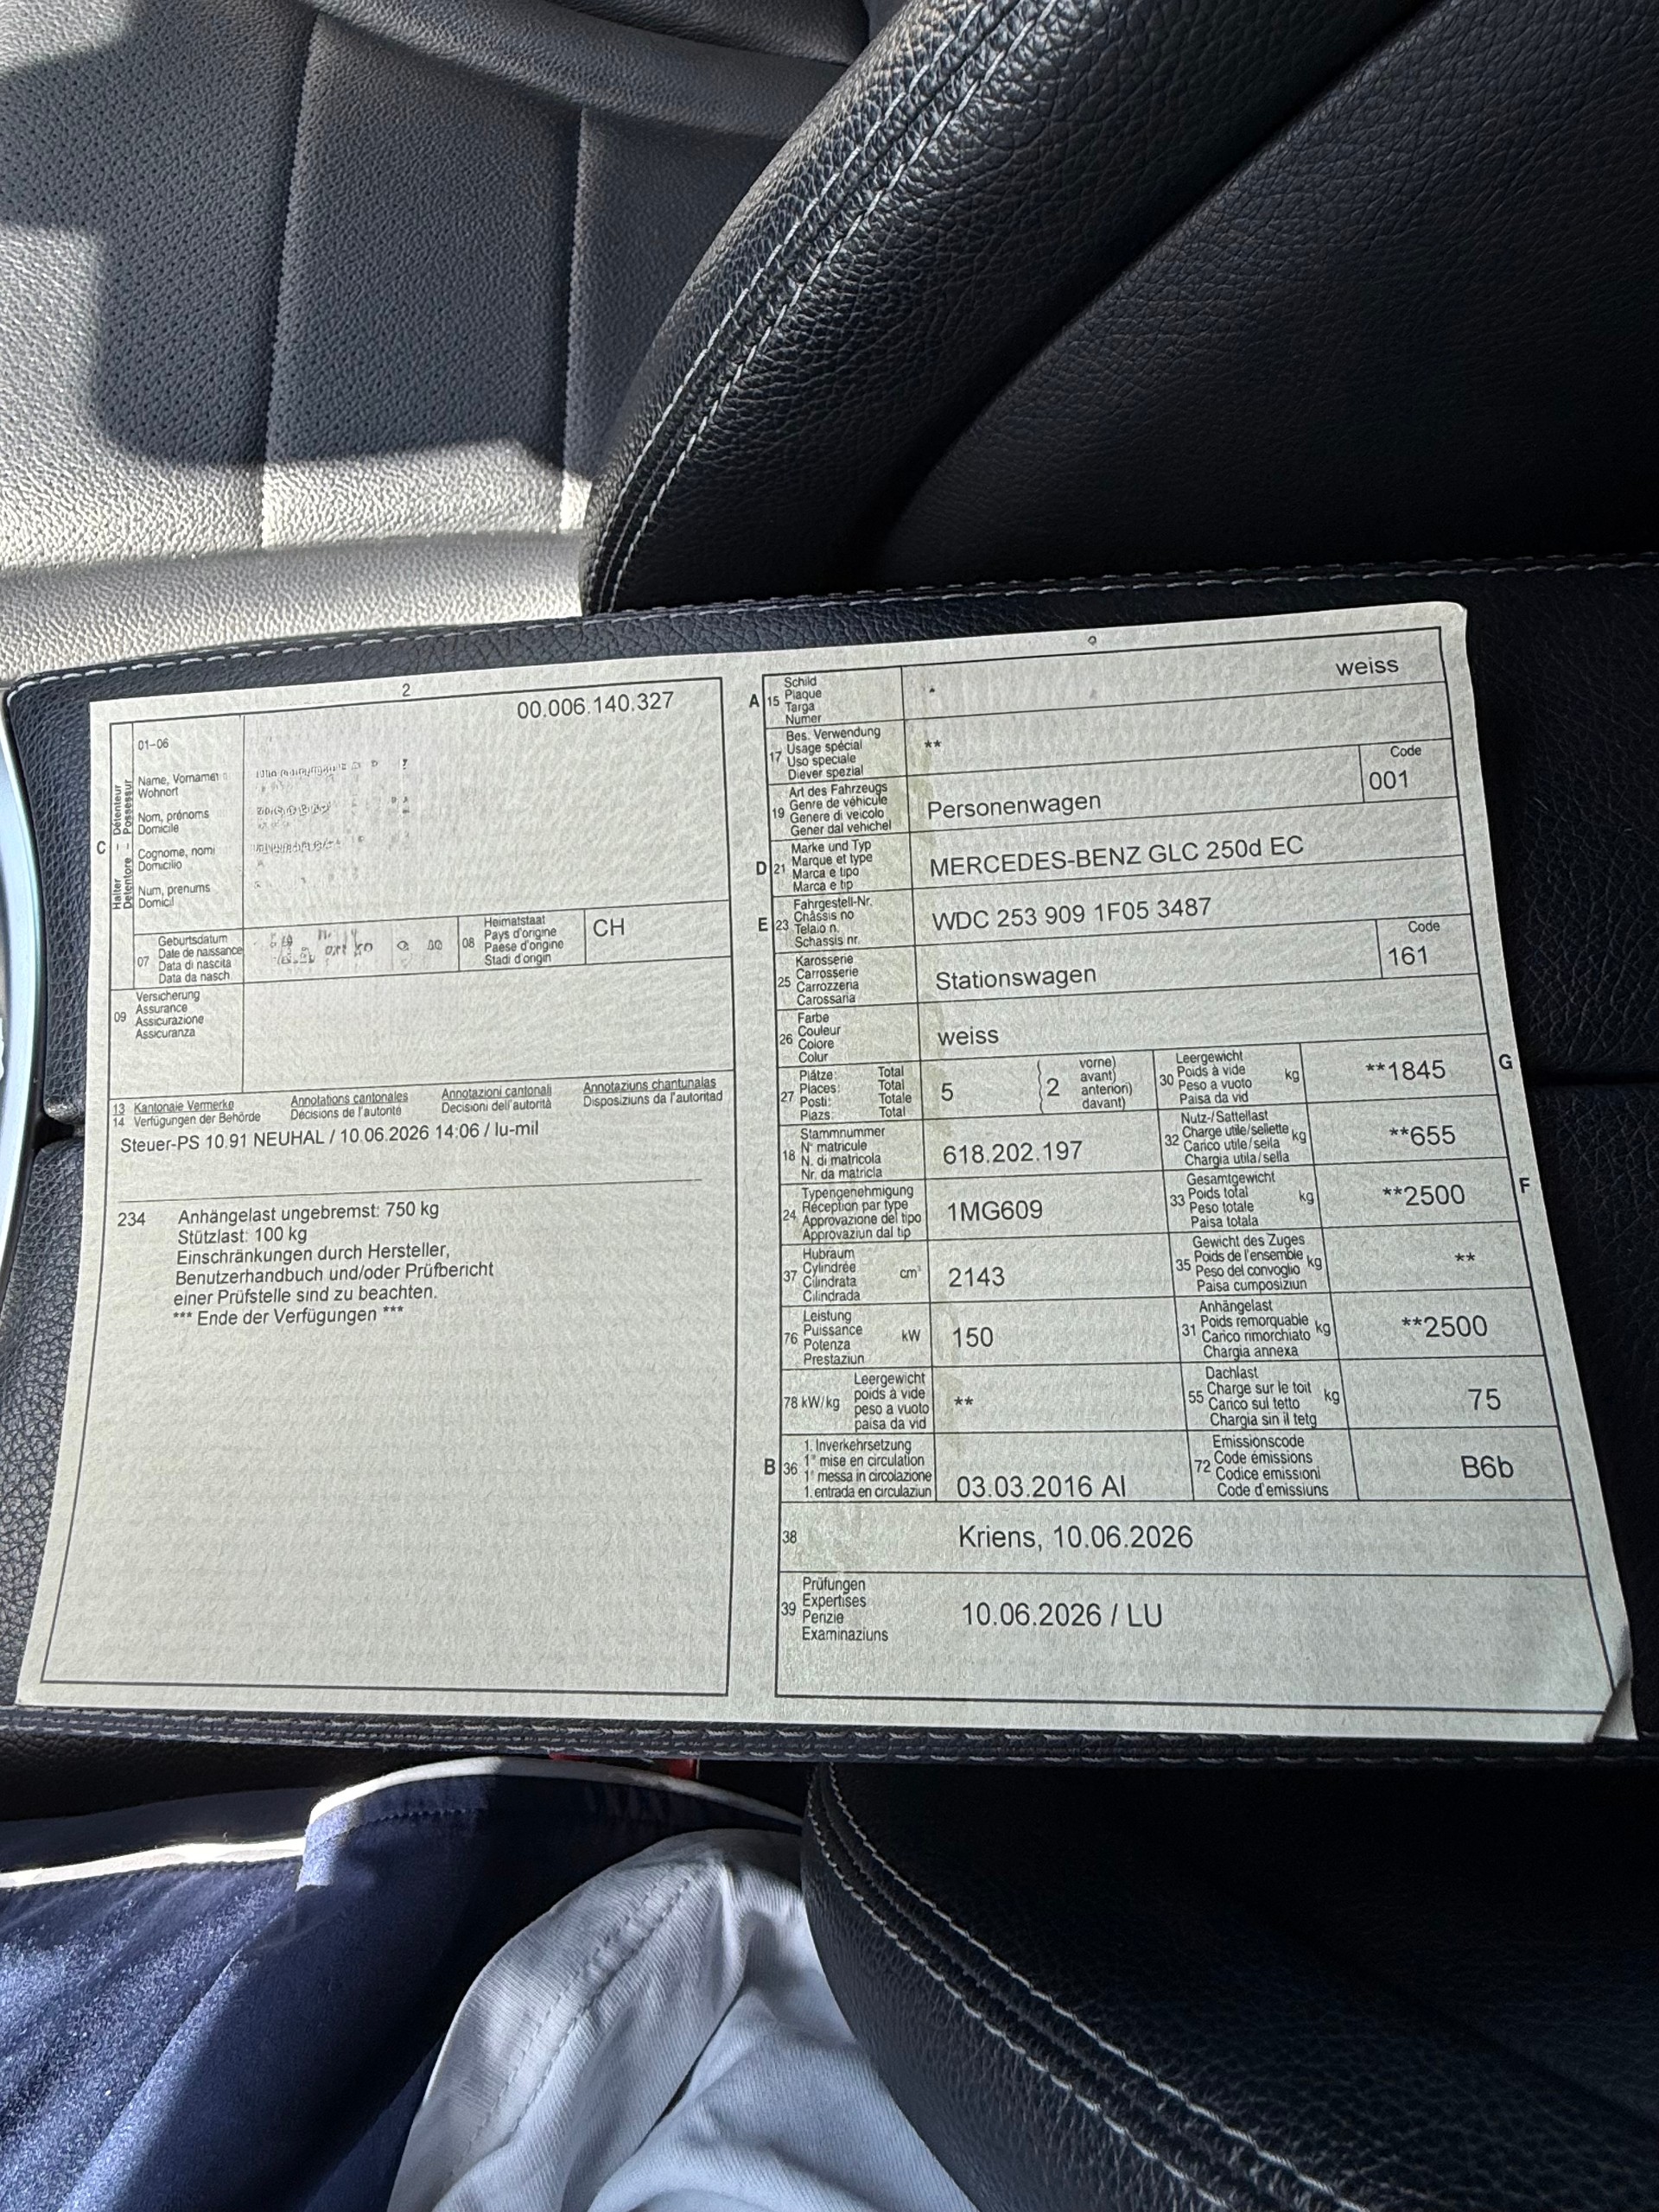 2
00.006.140.327
C
Halter – Détenteur
Detentore – Possessur
01–06
Name, Vorname
Wohnort
Nom, prénoms
Domicile
Cognome, nomi
Domicilio
Num, prenums
Domicil
07
Geburtsdatum
Date de naissance
Data di nascita
Data da nasch.
08
Heimatstaat
Pays d'origine
Paese d'origine
Stadi d'origin
CH
09
Versicherung
Assurance
Assicurazione
Assicuranza
13 Kantonale Vermerke Annotations cantonales Annotazioni cantonali Annotaziuns chantunalas
14 Verfügungen der Behörde Décisions de l'autorité Decisioni dell'autorità Disposiziuns da l'autoritad
Steuer-PS 10.91 NEUHAL / 10.06.2026 14:06 / lu-mil
234 Anhängelast ungebremst: 750 kg
Stützlast: 100 kg
Einschränkungen durch Hersteller,
Benutzerhandbuch und/oder Prüfbericht
einer Prüfstelle sind zu beachten.
*** Ende der Verfügungen ***
A 15
Schild
Plaque
Targa
Numer
weiss
17
Bes. Verwendung
Usage spécial
Uso speciale
Diever spezial
**
19
Art des Fahrzeugs
Genre de véhicule
Genere di veicolo
Gener dal vehichel
Personenwagen
Code
001
D 21
Marke und Typ
Marque et type
Marca e tipo
Marca e tip
MERCEDES-BENZ GLC 250d EC
E 23
Fahrgestell-Nr.
Châssis no
Telaio n.
Schassis nr.
WDC 253 909 1F05 3487
25
Karosserie
Carrosserie
Carrozzeria
Carossaria
Stationswagen
Code
161
26
Farbe
Couleur
Colore
Colur
weiss
27
Plätze: Total
Places: Total
Posti: Totale
Plazs: Total
5
2
vorne)
avant)
anteriori)
davant)
30
Leergewicht
Poids à vide
Peso a vuoto
Paisa da vid
kg
**1845
G
18
Stammnummer
N° matricule
N. di matricola
Nr. da matricla
618.202.197
32
Nutz-/Sattellast
Charge utile/sellette
Carico utile/sella
Chargia utila/sella
kg
**655
24
Typengenehmigung
Réception par type
Approvazione del tipo
Approvaziun dal tip
1MG609
33
Gesamtgewicht
Poids total
Peso totale
Paisa totala
kg
**2500
F
37
Hubraum
Cylindrée
Cilindrata
Cilindrada
cm³
2143
35
Gewicht des Zuges
Poids de l'ensemble
Peso del convoglio
Paisa cumposiziun
kg
**
76
Leistung
Puissance
Potenza
Prestaziun
kW
150
31
Anhängelast
Poids remorquable
Carico rimorchiato
Chargia annexa
kg
**2500
78 kW/kg
Leergewicht
poids à vide
peso a vuoto
paisa da vid
**
55
Dachlast
Charge sur le toit
Carico sul tetto
Chargia sin il tetg
kg
75
B 36
1. Inverkehrsetzung
1ʳᵉ mise en circulation
1ª messa in circolazione
1. entrada en circulaziun
03.03.2016 AI
72
Emissionscode
Code émissions
Codice emissioni
Code d'emissiuns
B6b
38
Kriens, 10.06.2026
39
Prüfungen
Expertises
Perizie
Examinaziuns
10.06.2026 / LU